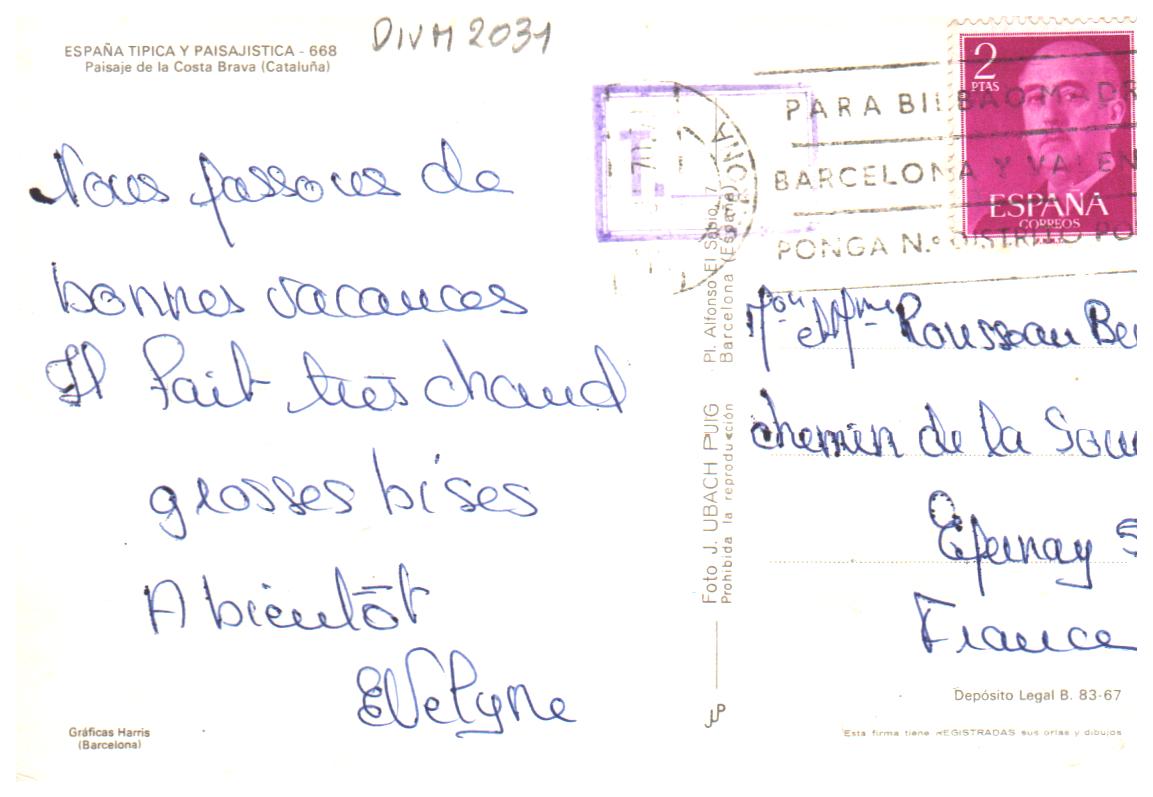 ESPAÑA TIPICA Y PAISAJISTICA - 668
Paisaje de la Costa Brava (Cataluña)
DIVM 2031
Nous passons de
bonnes vacances
Il fait très chaud
grosses bises
A bientôt
Evelyne
Gráficas Harris
(Barcelona)
Foto J. UBACH PUIG Pl. Alfonso El Sabio, 7
Prohibida la reproducción Barcelona (España)
T.
PARA BILBAO MADR
BARCELONA Y VALEN
PONGA N.º DISTRITO PO
2
PTAS
ESPAÑA
CORREOS
F.N.M.T.
Mme Rousseau Be
chemin de la Sou
Epernay S
France
Depósito Legal B. 83-67
Esta firma tiene REGISTRADAS sus orlas y dibujos